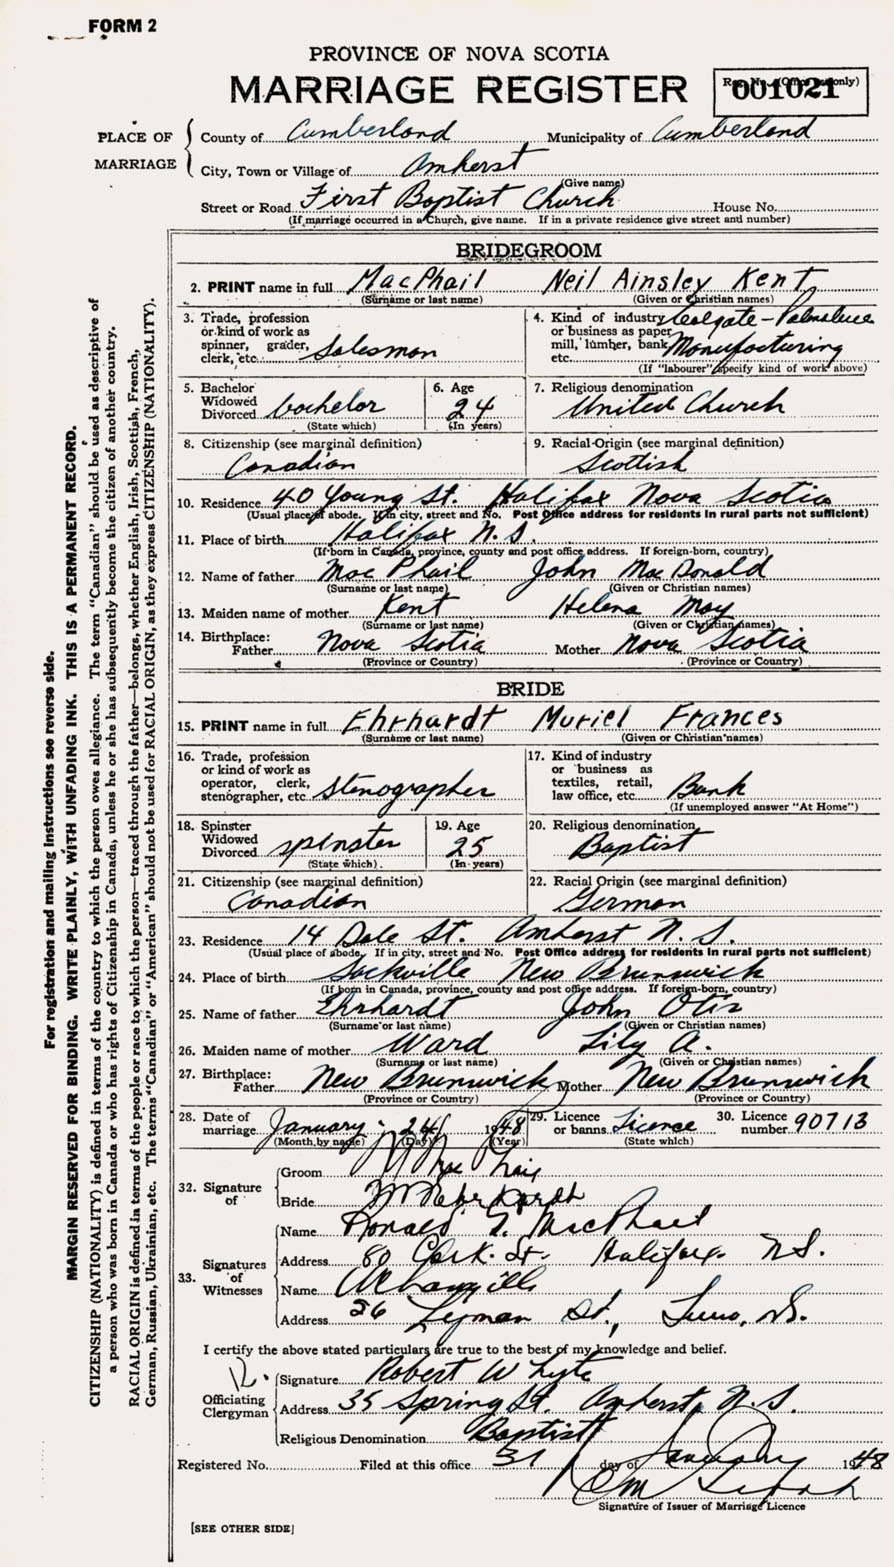 FORM 2
PROVINCE OF NOVA SCOTIA
MARRIAGE REGISTER
Reg. No. (Office use only)
001021
PLACE OF MARRIAGE
County of Cumberland Municipality of Cumberland
City, Town or Village of Amherst
(Give name)
Street or Road First Baptist Church House No.
(If marriage occurred in a Church, give name. If in a private residence give street and number)
BRIDEGROOM
2. PRINT name in full MacPhail Neil Ainsley Kent
(Surname or last name) (Given or Christian names)
3. Trade, profession or kind of work as spinner, grader, clerk, etc. Salesman
4. Kind of industry or business as paper mill, lumber, bank, etc. Colgate-Palmolive Manufacturing
(If "labourer" specify kind of work above)
5. Bachelor Widowed Divorced bachelor
(State which)
6. Age 24
(In years)
7. Religious denomination United Church
8. Citizenship (see marginal definition) Canadian
9. Racial Origin (see marginal definition) Scottish
10. Residence 40 Young St. Halifax Nova Scotia
(Usual place of abode. If in city, street and No. Post Office address for residents in rural parts not sufficient)
11. Place of birth Halifax N.S.
(If born in Canada, province, county and post office address. If foreign-born, country)
12. Name of father MacPhail John MacDonald
(Surname or last name) (Given or Christian names)
13. Maiden name of mother Kent Helena May
(Surname or last name) (Given or Christian names)
14. Birthplace: Father Nova Scotia Mother Nova Scotia
(Province or Country) (Province or Country)
BRIDE
15. PRINT name in full Ehrhardt Muriel Frances
(Surname or last name) (Given or Christian names)
16. Trade, profession or kind of work as operator, clerk, stenographer, etc. Stenographer
17. Kind of industry or business as textiles, retail, law office, etc. Bank
(If unemployed answer "At Home")
18. Spinster Widowed Divorced spinster
(State which)
19. Age 25
(In years)
20. Religious denomination Baptist
21. Citizenship (see marginal definition) Canadian
22. Racial Origin (see marginal definition) German
23. Residence 14 Dale St. Amherst N.S.
(Usual place of abode. If in city, street and No. Post Office address for residents in rural parts not sufficient)
24. Place of birth Sackville New Brunswick
(If born in Canada, province, county and post office address. If foreign-born, country)
25. Name of father Ehrhardt John Otis
(Surname or last name) (Given or Christian names)
26. Maiden name of mother Ward Lily A.
(Surname or last name) (Given or Christian names)
27. Birthplace: Father New Brunswick Mother New Brunswick
(Province or Country) (Province or Country)
28. Date of marriage January 24 1948
(Month by name) (Day) (Year)
29. Licence or banns Licence
(State which)
30. Licence number 90713
32. Signature of
Groom MacPhail
Bride
33. Signatures of Witnesses
Name Donald G. MacPhail
Address 80 Cork St. Halifax N.S.
Name
Address 26 Lyman St., Truro, N.S.
I certify the above stated particulars are true to the best of my knowledge and belief.
Officiating Clergyman
Signature Robert Whyte
Address 35 Spring St. Amherst, N.S.
Religious Denomination Baptist
Registered No. Filed at this office 31 day of January 1948
Signature of Issuer of Marriage Licence
[SEE OTHER SIDE]
For registration and mailing instructions see reverse side.
MARGIN RESERVED FOR BINDING. WRITE PLAINLY, WITH UNFADING INK. THIS IS A PERMANENT RECORD.
CITIZENSHIP (NATIONALITY) is defined in terms of the country to which the person owes allegiance. The term "Canadian" should be used as descriptive of
a person who was born in Canada or who has rights of Citizenship in Canada, unless he or she has subsequently become the citizen of another country.
RACIAL ORIGIN is defined in terms of the people or race to which the person—traced through the father—belongs, whether English, Irish, Scottish, French,
German, Russian, Ukrainian, etc. The terms "Canadian" or "American" should not be used for RACIAL ORIGIN, as they express CITIZENSHIP (NATIONALITY).